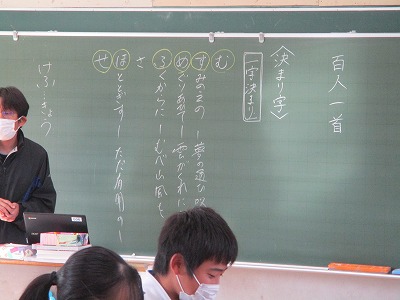 百人一首
〈決まり字〉
一字決まり
む
すみのえの ー夢の通ひ
めぐりあひてー雲がくれ
ふくからにーむべ山風を
さ
ほととぎすーただ有明の
せ
けふ→きょう